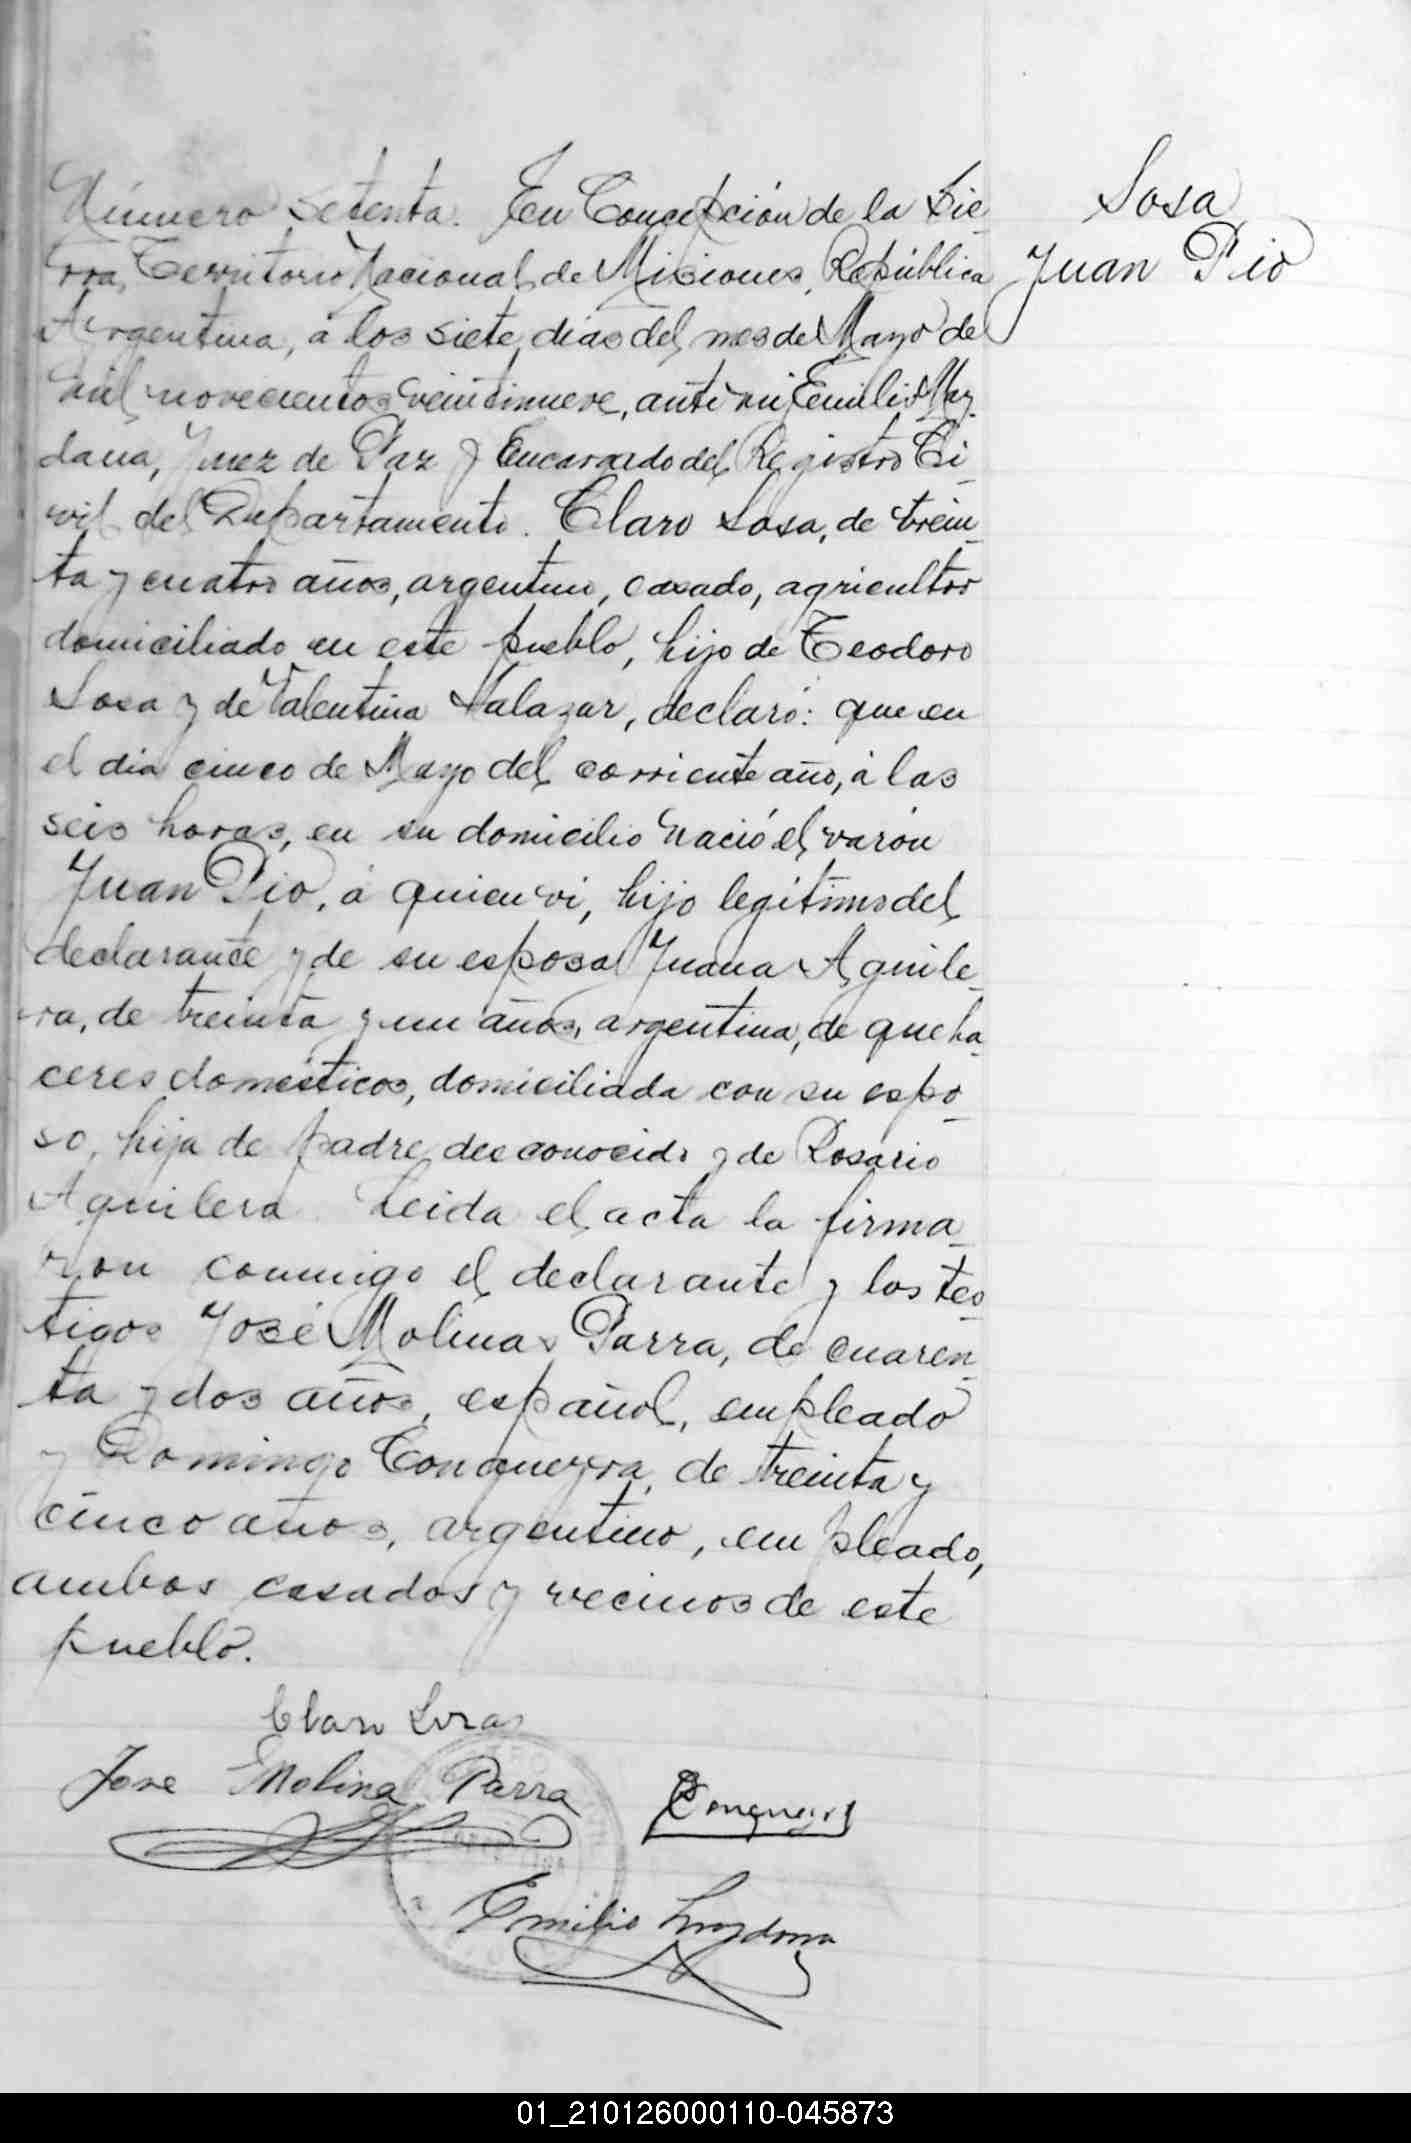 Número setenta. En Concepción de la Sie-
rra, Territorio Nacional de Misiones, República
Argentina, á los siete dias del mes de Mayo de
mil novecientos veintinueve, ante mi Emilio May-
dana, Juez de Paz y Encargado del Registro Ci-
vil del Departamento. Claro Sosa, de trein-
ta y cuatro años, argentino, casado, agricultor
domiciliado en este pueblo, hijo de Teodoro
Sosa y de Valentina Salazar, declaró: que en
el dia cinco de Mayo del corriente año, á las
seis horas, en su domicilio nació el varón
Juan Pio, á quien vi, hijo legítimo del
declarante y de su esposa Juana Aguile-
ra, de treinta y un años, argentina, de queha-
ceres domésticos, domiciliada con su espo-
so, hija de padre desconocido y de Rosario
Aguilera. Leida el acta la firma-
ron conmigo el declarante y los tes-
tigos José Molinas Parra, de cuaren-
ta y dos años, español, empleado
y Domingo Conqueyra, de treinta y
cinco años, argentino, empleado,
ambos casados y vecinos de este
pueblo.
Sosa
Juan Pio
Claro Sosa
Jose Molina Parra
Emilio Maydana
01_210126000110-045873